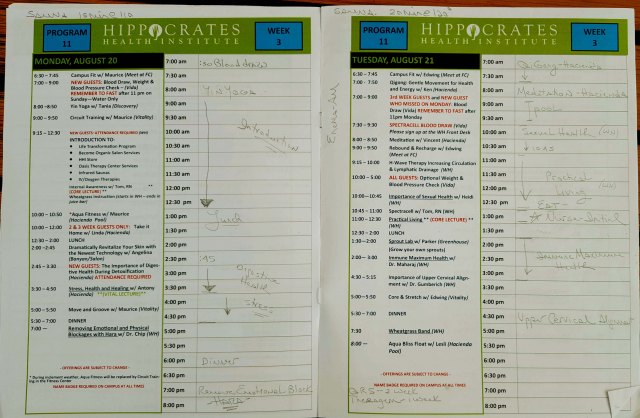 Sauna
PROGRAM
11
HIPPOCRATES
HEALTH INSTITUTE
WEEK
3
MONDAY, AUGUST 20
6:30 – 7:45 Campus Fit w/ Maurice (Meet at FC)
7:00 – 9:00 NEW GUESTS: Blood Draw, Weight &
Blood Pressure Check – (Vida)
REMEMBER TO FAST after 11 pm on
Sunday—Water Only
8:00 –8:50 Yin Yoga w/ Tania (Discovery)
9:00 –9:50 Circuit Training w/ Maurice (Vitality)
9:15 – 12:30 NEW GUESTS: ATTENDANCE REQUIRED (WH)
INTRODUCTION TO:
• Life Transformation Program
• Become Organic Salon Services
• HHI Store
• Oasis Therapy Center Services
• Infrared Saunas
• IV/Oxygen Therapies
Internal Awareness w/ Tom, RN **
(CORE LECTURE) **
Wheatgrass Instruction (starts in WH – ends in
juice bar)
10:00 – 10:50 *Aqua Fitness w/ Maurice
(Hacienda Pool)
10:00 – 12:00 2 & 3 WEEK GUESTS ONLY: Take it
Home w/ Linda (Hacienda)
12:30 – 2:00 LUNCH
2:00 – 2:45 Dramatically Revitalize Your Skin with
the Newest Technology w/ Angelina
(Banyan/Salon)
2:45 – 3:30 NEW GUESTS: The Importance of Diges-
tive Health During Detoxification
(Hacienda) ATTENDANCE REQUIRED
3:30 – 4:50 Stress, Health and Healing w/ Antony
(Hacienda) **(VITAL LECTURE)**
5:00 – 5:50 Move and Groove w/ Maurice (Vitality)
5:30 – 7:00 DINNER
7:00 — Removing Emotional and Physical
Blockages with Hara w/ Dr. Chip (WH)
- OFFERINGS ARE SUBJECT TO CHANGE -
* During inclement weather, Aqua Fitness will be replaced by Circuit Train-
ing in the Fitness Center.
NAME BADGE REQUIRED ON CAMPUS AT ALL TIMES
7:00 am :30 Blood draw
7:30 am
8:00 am Yin Yoga
8:30 am
9:00 am
9:30 am
10:00 am Introduction
10:30 am
11:00 am
11:30 am
12:00 pm
12:30 pm
1:00 pm Lunch
1:30 pm
2:00 pm
2:30 pm :45
3:00 pm Digestive
Health
3:30 pm
4:00 pm Stress
4:30 pm
5:00 pm
5:30 pm
6:00 pm Dinner
6:30 pm
7:00 pm Remove Emotional Block
Hara
8:00 pm
Sauna
PROGRAM
11
HIPPOCRATES
HEALTH INSTITUTE
WEEK
3
TUESDAY, AUGUST 21
6:30 – 7:45 Campus Fit w/ Edwing (Meet at FC)
7:00 – 7:50 Qigong: Gentle Movement for Health
and Energy w/ Ken (Hacienda)
7:00 – 9:00 3rd WEEK GUESTS and NEW GUEST
WHO MISSED ON MONDAY: Blood
Draw (Vida) REMEMBER TO FAST after
11pm Monday
7:30 – 9:30 SPECTRACELL BLOOD DRAW (Vida)
Please sign up at the WH Front Desk
8:00 – 8:50 Meditation w/ Vincent (Hacienda)
9:00 – 9:50 Rebound & Recharge w/ Edwing
(Meet at FC)
9:15 – 10:00 H-Wave Therapy Increasing Circulation
& Lymphatic Drainage (WH)
10:00 – 5:00 ALL GUESTS: Optional Weight &
Blood Pressure Check (Vida)
10:00—10:45 Importance of Sexual Health w/ Heidi
(WH)
10:45 – 11:00 Spectracell w/ Tom, RN (WH)
11:00 – 12:00 Practical Living ** (CORE LECTURE) **
w/ Tom, RN (WH)
12:30 – 2:00 LUNCH
1:30—2:00 Sprout Lab w/ Parker (Greenhouse)
(Grow your own sprouts)
2:00 – 3:00 Immune Maximum Health w/
Dr. Maharaj (WH)
4:30 – 5:15 Importance of Upper Cervical Align-
ment w/ Dr. Gumberich (WH)
5:00 – 5:50 Core & Stretch w/ Edwing (Vitality)
5:30 – 7:00 DINNER
7:30 Wheatgrass Band (WH)
8:00 — Aqua Bliss Float w/ Lesli (Hacienda
Pool)
- OFFERINGS ARE SUBJECT TO CHANGE -
NAME BADGE REQUIRED ON CAMPUS AT ALL TIMES
7:00 am Qi Gong-Hacienda
7:30 am
8:00 am Meditation - Hacienda
8:30 am
9:00 am
9:30 am
10:00 am Sexual Health (WH)
10:30 am
11:00 am Practical
Living (WH)
11:30 am
12:00 pm
12:30 pm
1:00 pm
1:30 pm
2:00 pm Immune Maximum
Health
2:30 pm
3:00 pm
3:30 pm
4:00 pm
4:30 pm Upper Cervical Alignment
5:00 pm
5:30 pm
6:00 pm
6:30 pm
7:00 pm
8:00 pm